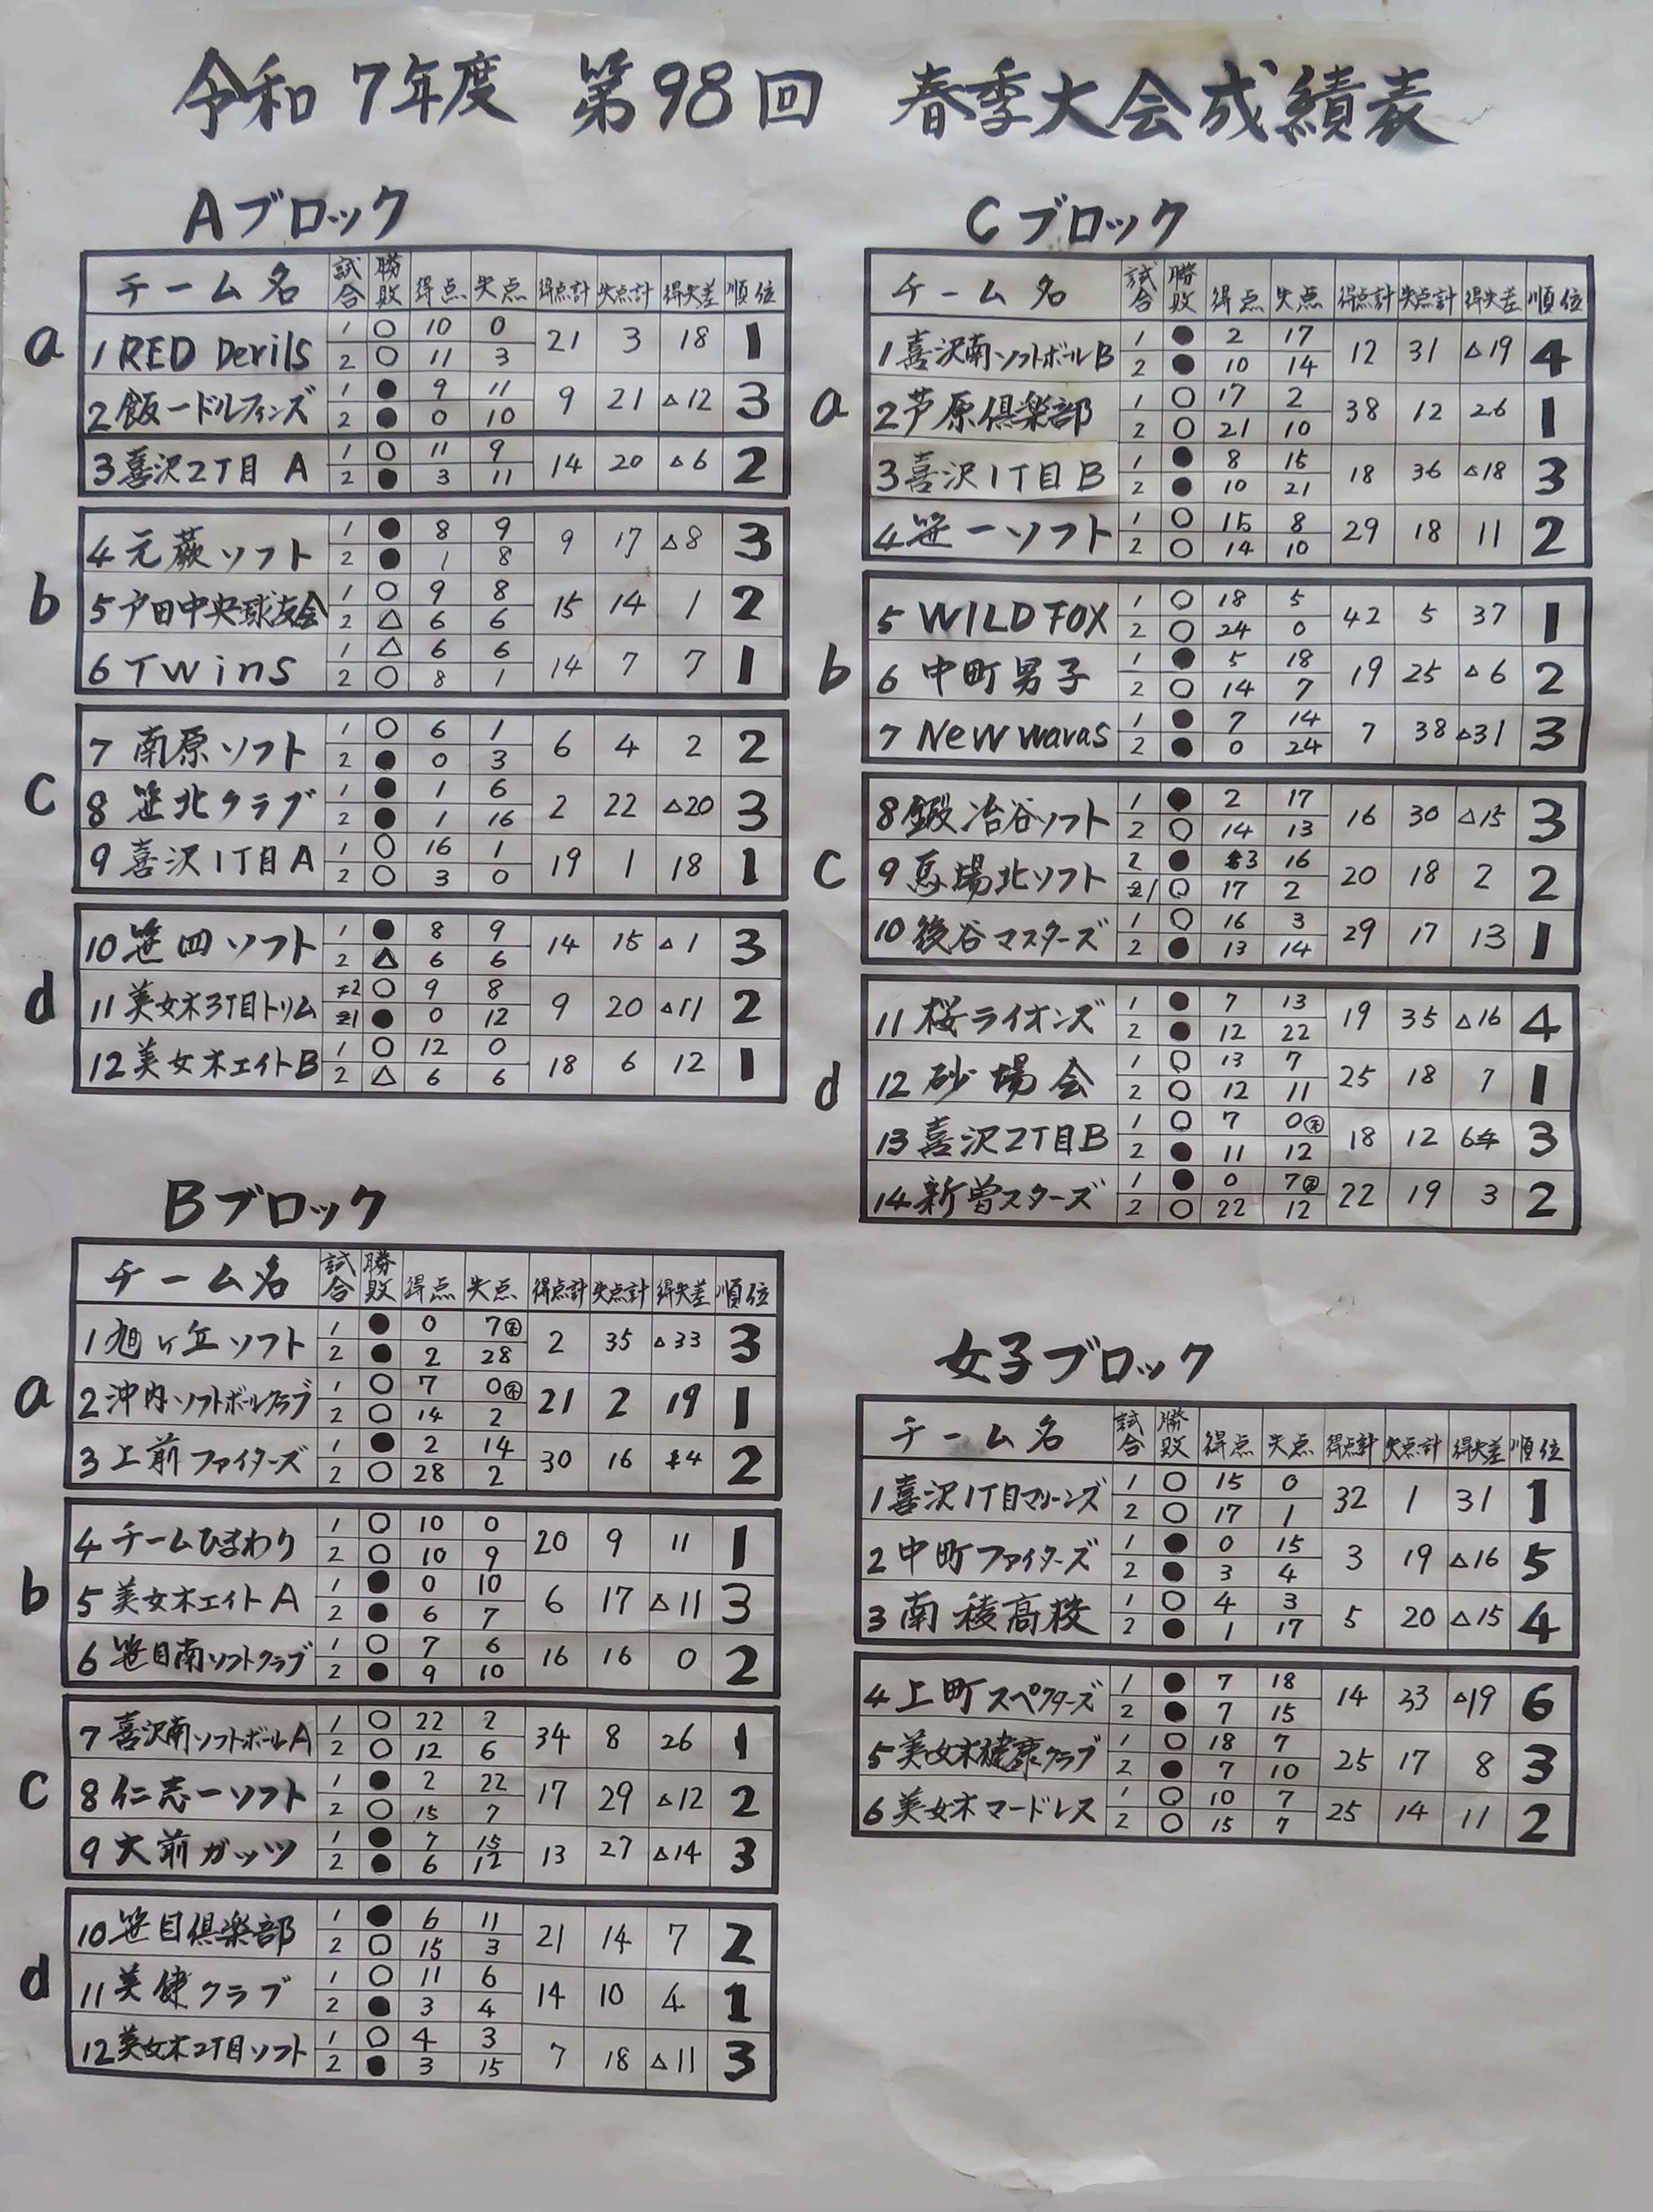 令和7年度 第98回 春季大会成績表
Aブロック
チーム名 試合 勝敗 得点 失点 得点計 失点計 得失差 順位
a
1 RED Derils 1 ○ 10 0 21 3 18 1
2 ○ 11 3
2 飯一ドルフィンズ 1 ● 9 11 9 21 △12 3
2 ● 0 10
3 喜沢2丁目 A 1 ○ 11 9 14 20 △6 2
2 ● 3 11
b
4 元蕨ソフト 1 ● 8 9 9 17 △8 3
2 ● 1 8
5 戸田中央球友会 1 ○ 9 8 15 14 1 2
2 △ 6 6
6 Twins 1 △ 6 6 14 7 7 1
2 ○ 8 1
c
7 南原ソフト 1 ○ 6 1 6 4 2 2
2 ● 0 3
8 笹北クラブ 1 ● 1 6 2 22 △20 3
2 ● 1 16
9 喜沢1丁目A 1 ○ 16 1 19 1 18 1
2 ○ 3 0
d
10 笹四ソフト 1 ● 8 9 14 15 △1 3
2 △ 6 6
11 美女木3丁目トリム 2 ○ 9 8 9 20 △11 2
1 ● 0 12
12 美女木エイトB 1 ○ 12 0 18 6 12 1
2 △ 6 6
Bブロック
チーム名 試合 勝敗 得点 失点 得点計 失点計 得失差 順位
a
1 旭ヶ丘ソフト 1 ● 0 7㊍ 2 35 △33 3
2 ● 2 28
2 沖内ソフトボールクラブ 1 ○ 7 0 21 2 19 1
2 ○ 14 2
3 上前ファイターズ 1 ● 2 14 30 16 4 2
2 ○ 28 2
b
4 チームひまわり 1 ○ 10 0 20 9 11 1
2 ○ 10 9
5 美女木エイトA 1 ● 0 10 6 17 △11 3
2 ● 6 7
6 笹目南ソフトクラブ 1 ○ 7 6 16 16 0 2
2 ● 9 10
c
7 喜沢南ソフトボールA 1 ○ 22 2 34 8 26 1
2 ○ 12 6
8 仁志一ソフト 1 ● 2 22 17 29 △12 2
2 ○ 15 7
9 大前ガッツ 1 ● 7 15 13 27 △14 3
2 ● 6 12
d
10 笹目倶楽部 1 ● 6 11 21 14 7 2
2 ○ 15 3
11 美健クラブ 1 ○ 11 6 14 10 4 1
2 ● 3 4
12 美女木2丁目ソフト 1 ○ 4 3 7 18 △11 3
2 ● 3 15
Cブロック
チーム名 試合 勝敗 得点 失点 得点計 失点計 得失差 順位
a
1 喜沢南ソフトボールB 1 ● 2 17 12 31 △19 4
2 ● 10 14
2 芦原倶楽部 1 ○ 17 2 38 12 26 1
2 ○ 21 10
3 喜沢1丁目B 1 ● 8 15 18 36 △18 3
2 ● 10 21
4 笹一ソフト 1 ○ 15 8 29 18 11 2
2 ○ 14 10
b
5 WILD FOX 1 ○ 18 5 42 5 37 1
2 ○ 24 0
6 中町男子 1 ● 5 18 19 25 △6 2
2 ○ 14 7
7 New wavas 1 ● 7 14 7 38 △31 3
2 ● 0 24
c
8 鍛冶谷ソフト 1 ● 2 17 16 30 △15 3
2 ○ 14 13
9 馬場北ソフト 2 ● 3 16 20 18 2 2
1 ○ 17 2
10 後谷マスターズ 1 ○ 16 3 29 17 13 1
2 ● 13 14
d
11 桜ライオンズ 1 ● 7 13 19 35 △16 4
2 ● 12 22
12 砂場会 1 ○ 13 7 25 18 7 1
2 ○ 12 11
13 喜沢2丁目B 1 ○ 7 0 18 12 6 3
2 ● 11 12
14 新曽スターズ 1 ● 0 7 22 19 3 2
2 ○ 22 12
女子ブロック
チーム名 試合 勝敗 得点 失点 得点計 失点計 得失差 順位
1 喜沢1丁目マリーンズ 1 ○ 15 0 32 1 31 1
2 ○ 17 1
2 中町ファイターズ 1 ● 0 15 3 19 △16 5
2 ● 3 4
3 南稜高校 1 ○ 4 3 5 20 △15 4
2 ● 1 17
4 上町スペクターズ 1 ● 7 18 14 33 △19 6
2 ● 7 15
5 美女木健康クラブ 1 ○ 18 7 25 17 8 3
2 ● 7 10
6 美女木マードレス 1 ○ 10 7 25 14 11 2
2 ○ 15 7